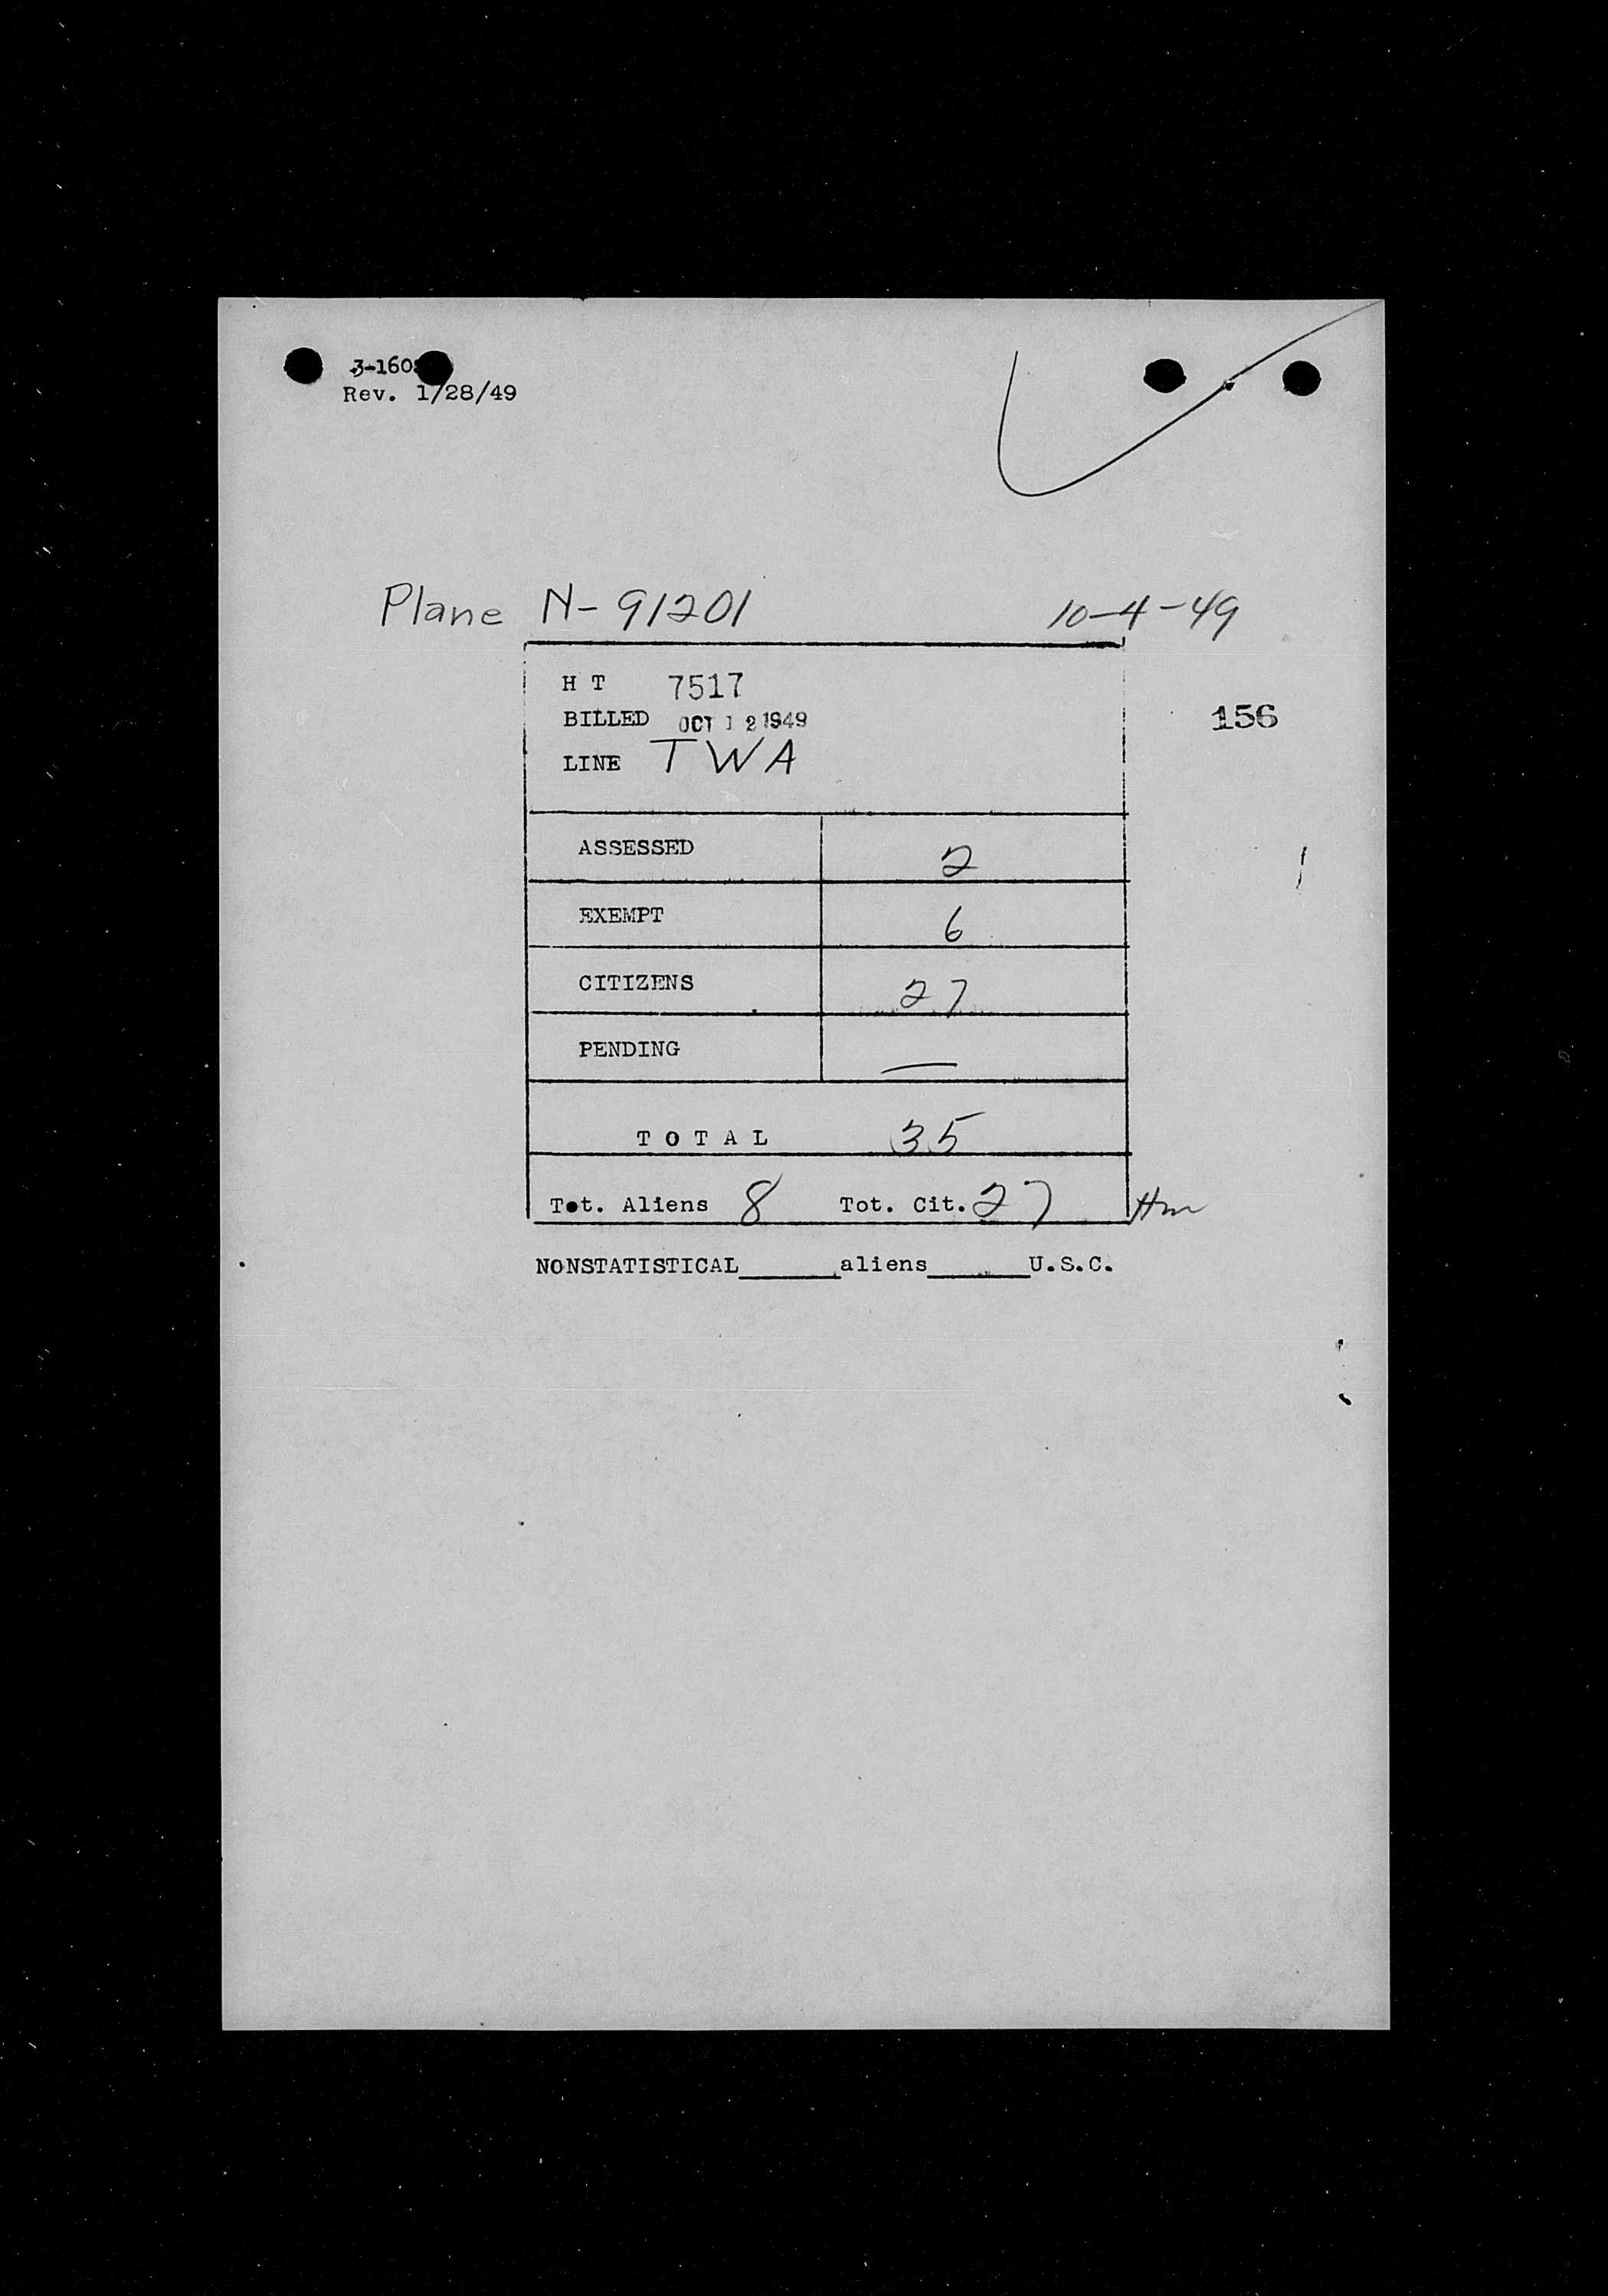 3-160
Rev. 1/28/49
Plane N-91201 10-4-49
H T 7517
BILLED OCT 12 1949
156
LINE TWA
ASSESSED 2
EXEMPT 6
CITIZENS 27
PENDING —
TOTAL 35
Tot. Aliens 8 Tot. Cit. 27
NONSTATISTICAL______aliens______U.S.C.